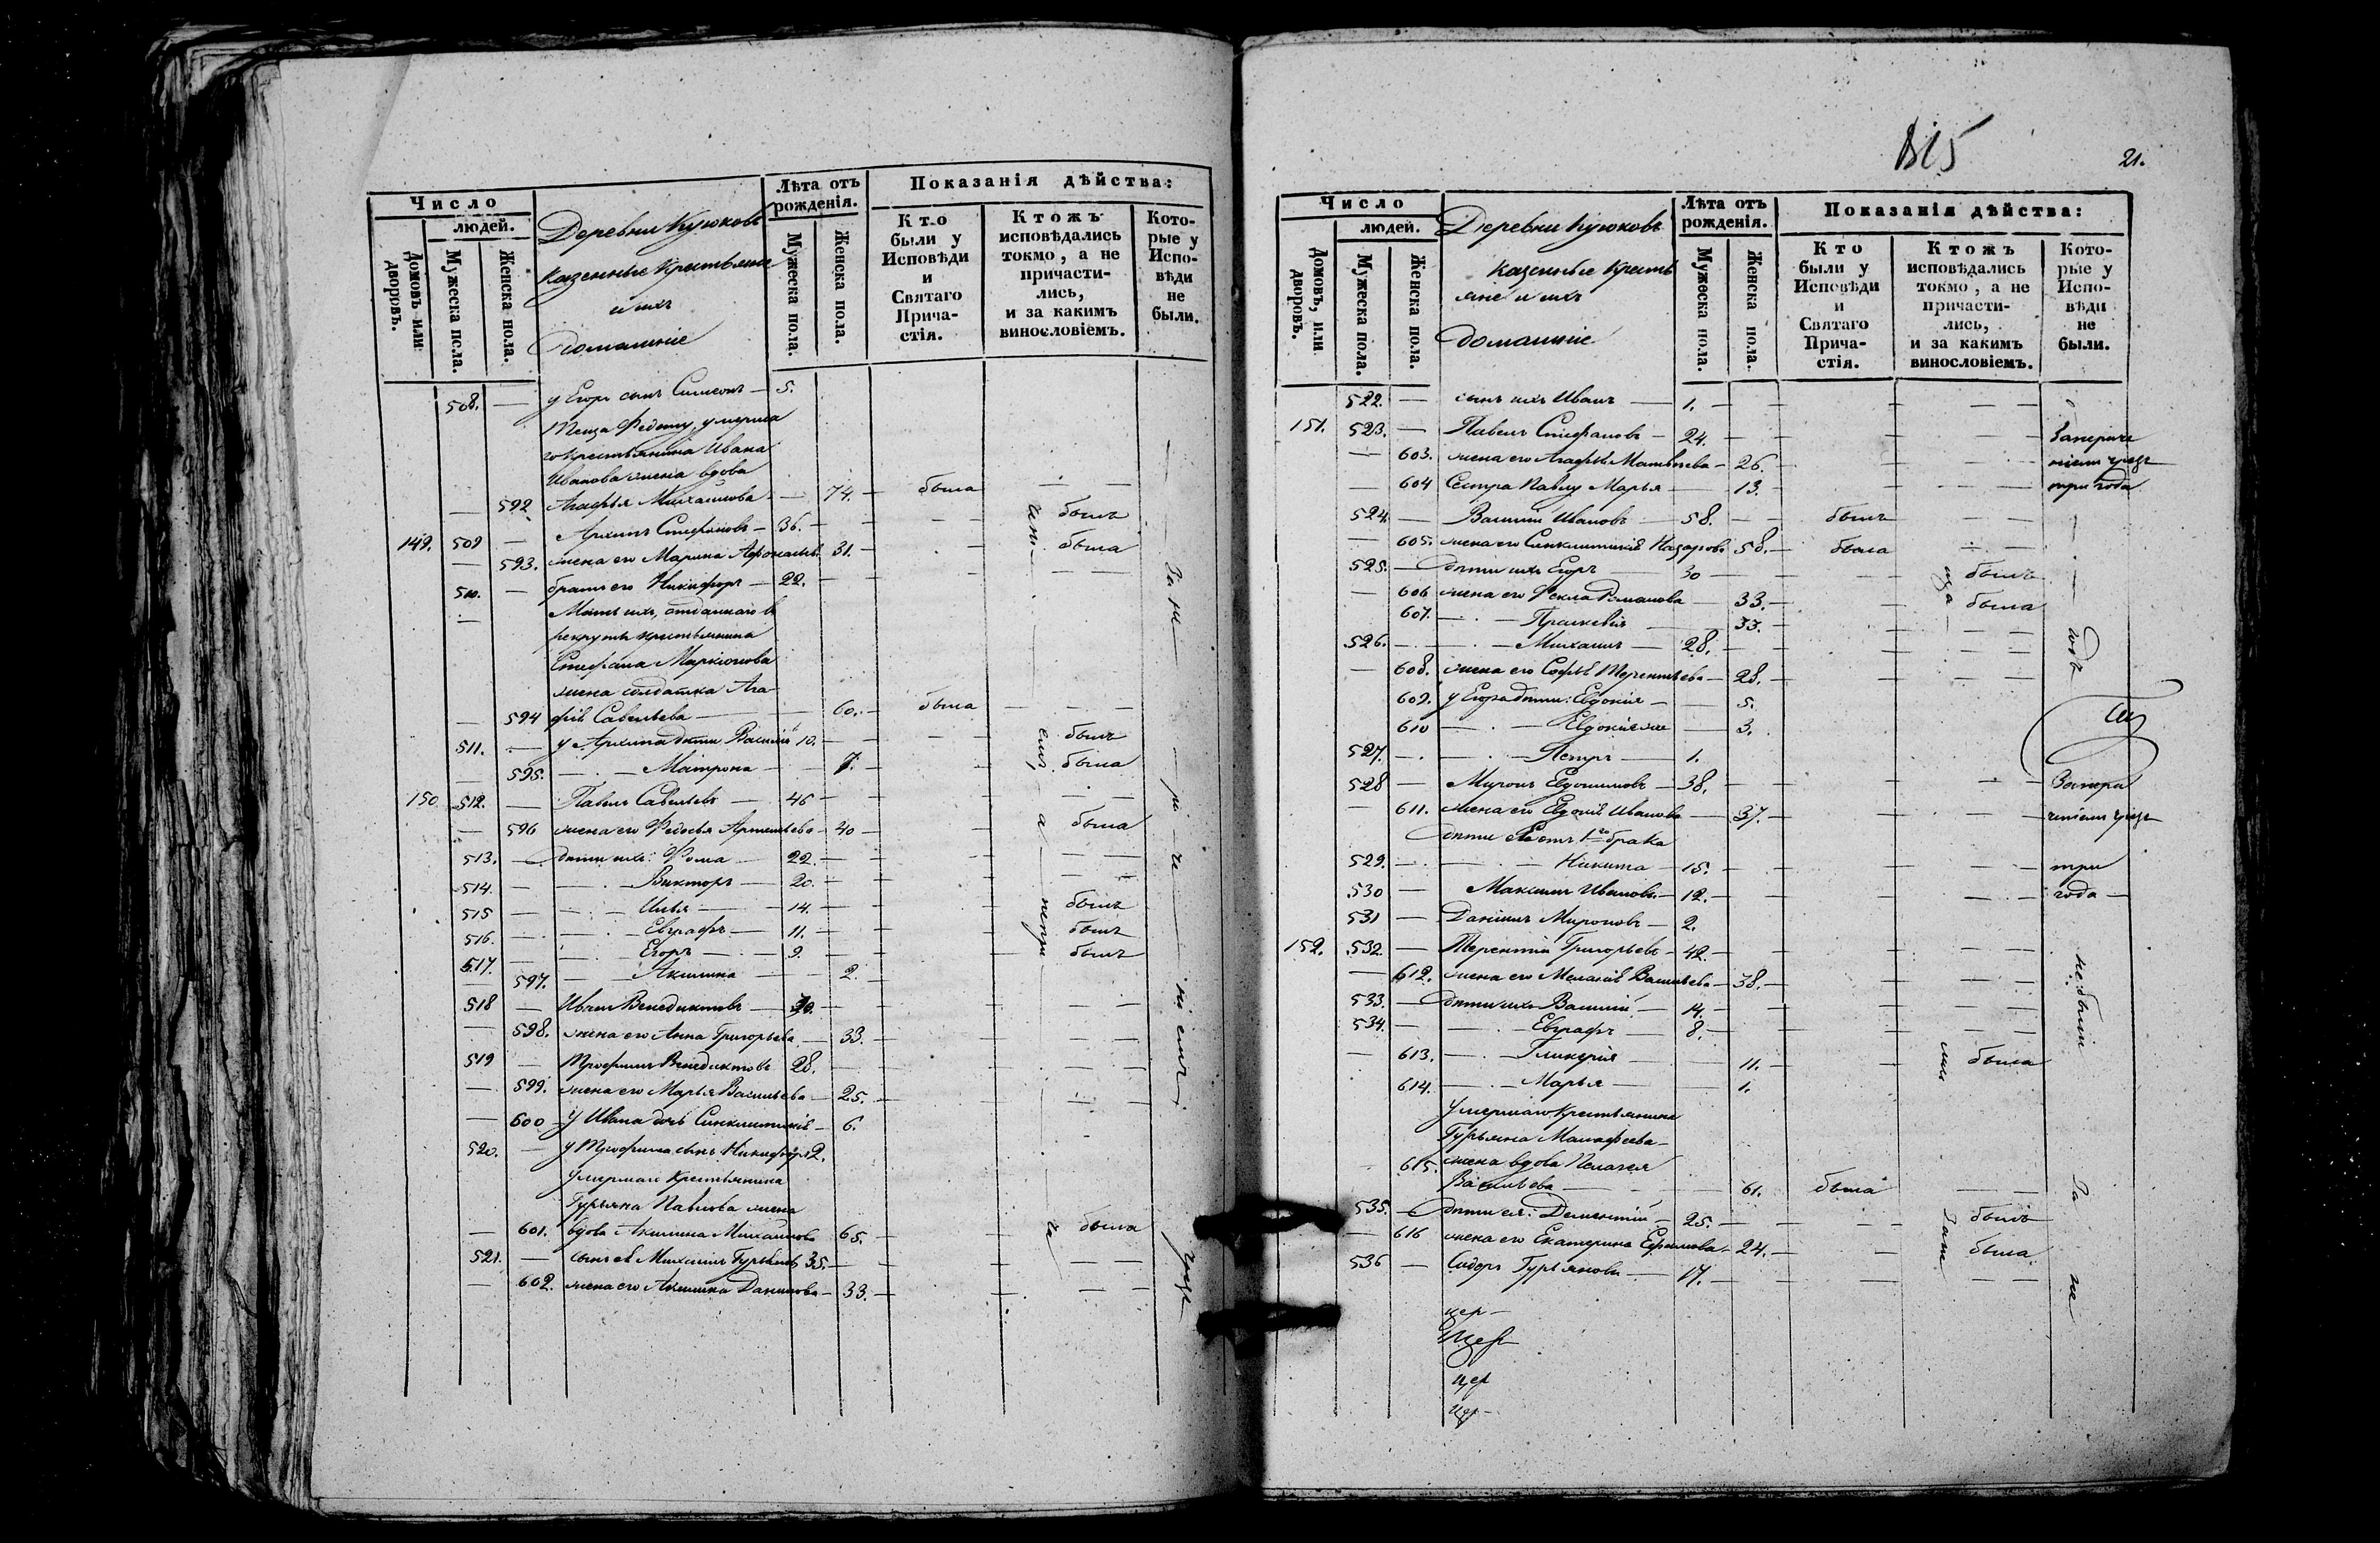 Число
людей.
Домовъ или дворовъ.
Мужеска пола.
Женска пола.
Деревни Куюковъ
казенные крестьяне
и ихъ
домашніе
Лѣта отъ рожденія.
Мужеска пола.
Женска пола.
Показанія дѣйства:
Кто были у Исповѣди и Святаго Прича-стія.
Ктожъ исповѣдались токмо, а не причасти-лись, и за какимъ винословіемъ.
Кото-рые у Испо-вѣди не были.
508. — у Егора сынъ Симеонъ — 5.
Теща Федоту, умерша
го крестьянина Ивана
Иванова жена вдова
— 592 Агафья Михайлова — 74. — была
149. 509 — Архипъ Стефановъ — 36. — былъ
— 593. жена его Марина Афонасьев. 31. — была
510. — братъ его Никифоръ — 22. —
Мать ихъ, отданнаго в
рекруты крестьянина
Стефана Маркіонова
жена солдатка Ага
— 594 фія Савельева — 60. — была
511. — у Архипа дѣти Василій 10. — былъ
— 595. — Матрона — 7. — была
150 512. — Павелъ Савельевъ — 46 —
— 596 жена его Федосья Артемьева — 40 — была
513. — дѣти ихъ: Фома — 22. —
514. — Викторъ — 20. —
515 — Илья — 14. — былъ
516. — Евграфъ — 11. — былъ
517. — Егоръ — 9. — былъ
— 597. — Акилина — 2.
518 — Иванъ Венедиктовъ — 30. —
— 598. жена его Анна Григорьева — 33. —
519 — Трофимъ Венедиктовъ 28. —
— 599. жена его Марья Васильева — 25. —
— 600 у Ивана дочь Синклитикія — 6.
520. — у Трофима сынъ Никифоръ 2.
Умершаго крестьянина
Гурьяна Павлова жена
— 601. вдова Акилина Михайлова 65. — была
521. — сынъ ея Михаилъ Гурьяновъ 35. —
— 602. жена его Акилина Данилова — 33. —
21.
Число
людей.
Домовъ, или дворовъ.
Мужеска пола.
Женска пола.
Деревни Куюковъ
казенные кресть
яне и ихъ
домашніе
Лѣта отъ рожденія.
Мужеска пола.
Женска пола.
Показанія дѣйства:
Кто были у Исповѣди и Святаго Прича-стія.
Ктожъ исповѣдались токмо, а не причасти-лись, и за какимъ винословіемъ.
Кото-рые у Испо-вѣди не были.
522. — сынъ ихъ Иванъ — 1. —
151. 523. — Павелъ Стефановъ — 24. —
— 603. жена его Агафія Матвѣева — 26. —
— 604 Сестра Павлу Марья — 13. — три года
524. — Василій Ивановъ — 58. — былъ
— 605. жена его Синклитикія Назаров. 58. — была
525. — дѣти ихъ Егоръ — 30 — былъ
— 606 жена его Фекла Романова — 33. — была
607. — Праскевія — 33. —
526. — Михаилъ — 28. —
— 608. жена его Софья Терентьева — 28. —
609. у Егора дѣти: Евдокія — 5.
610 — Евдокія же — 3.
527. — Петръ — 1.
528 — Миронъ Евдокимовъ — 38. —
— 611. жена его Евдокія Иванова — 37. —
дѣти 1го брака
529. — Никита — 15. — три
530 — Максимъ Ивановъ — 12. — года —
531 — Даніилъ Мироновъ — 2.
152. 532. — Терентій Григорьевъ — 42. —
— 612. жена его Меланія Васильева — 38. —
533. — дѣти ихъ Василій — 14. —
534. — Евграфъ — 8. —
— 613. — Гликерія — 11. — была
614. — Марья — 1.
Умершаго крестьянина
Гурьяна Малафеева
615. жена вдова Пелагея
Васильева — 61. была
535. — дѣти ея: Дементій — 25. — былъ
— 616 жена его Екатерина Ефимова — 24. — была
536 — Сидоръ Гурьяновъ — 17. —
цер
цер
цер
цер